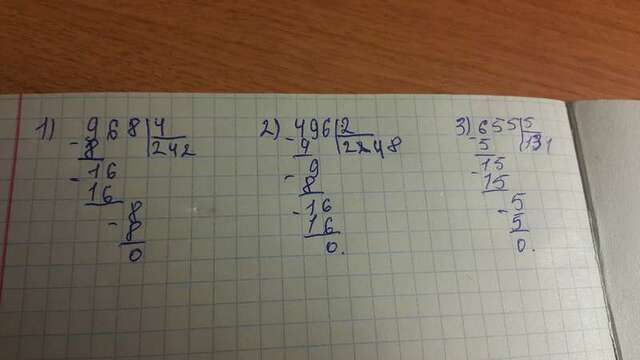 1) 968 | 4
- 8 | 242
- 16
16
- 8
8
0
2) 496 | 2
- 4 | 2248
- 9
8
- 16
16
0.
3) 655 | 5
- 5 | 131
- 15
15
- 5
5
0.